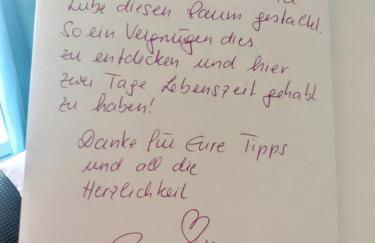 Liebe diesen Raum gestaltet.
So ein Vergnügen dies
zu entdecken und hier
zwei Tage Lebenszeit gehabt
zu haben!
Danke für Eure Tipps
und all die
Herzlichkeit